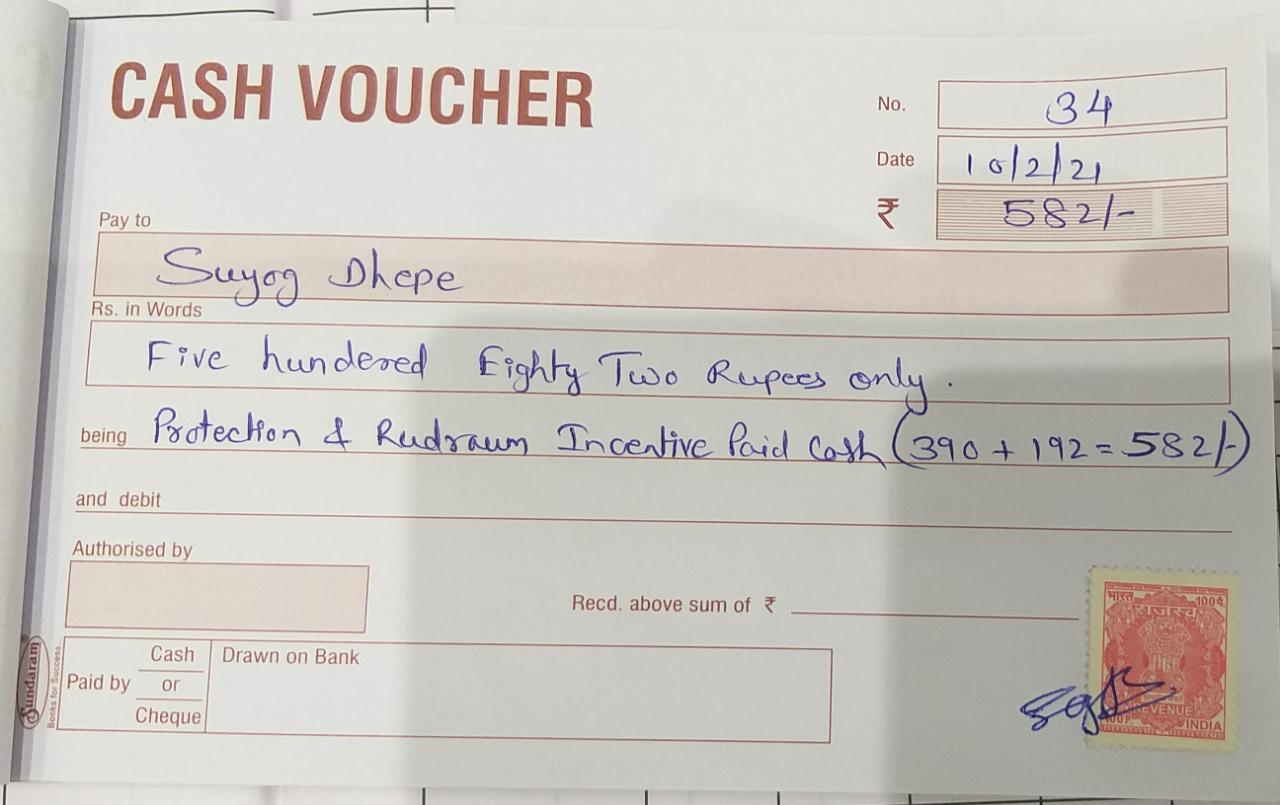 CASH VOUCHER
No. 34
Date 10/2/21
₹ 582/-
Pay to
Suyog Dhepe
Rs. in Words
Five hundered Eighty Two Rupees only.
being Protection & Rudraum Incentive Paid Cash (390 + 192 = 582/-)
and debit
Authorised by
Recd. above sum of ₹
Paid by Cash or Cheque
Drawn on Bank
Sundaram
Books for Success...
भारत 100पै.
राजस्व
REVENUE
100P. INDIA